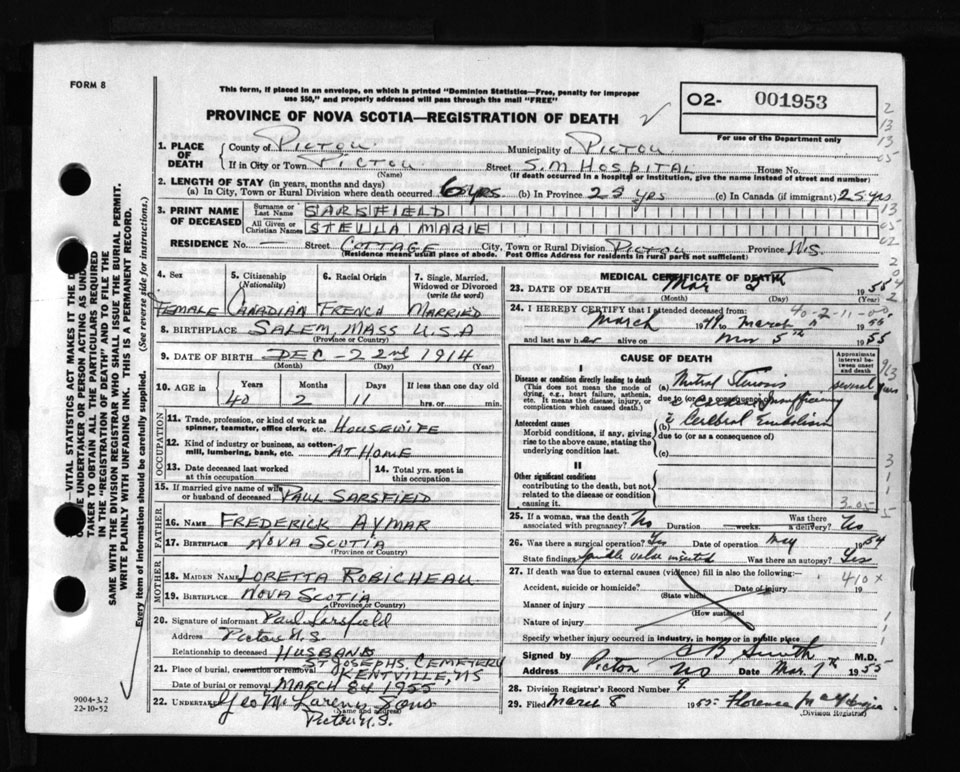 FORM 8
This form, if placed in an envelope, on which is printed "Dominion Statistics—Free, penalty for improper
use $50," and properly addressed will pass through the mail "FREE"
PROVINCE OF NOVA SCOTIA—REGISTRATION OF DEATH
O2- 001953
For use of the Department only
1. PLACE OF DEATH
County of PICTOU Municipality of PICTOU
If in City or Town PICTOU Street S.M. HOSPITAL House No.
(Name) (If death occurred in a hospital or institution, give the name instead of street and number)
2. LENGTH OF STAY (in years, months and days)
(a) In City, Town or Rural Division where death occurred 6 yrs (b) In Province 25 yrs (c) In Canada (if immigrant) 25 yrs
3. PRINT NAME OF DECEASED
Surname or Last Name SARSFIELD
All Given or Christian Names STELLA MARIE
RESIDENCE No. — Street COTTAGE City, Town or Rural Division PICTOU Province N.S.
(Residence means usual place of abode. Post Office Address for residents in rural parts not sufficient)
4. Sex
FEMALE
5. Citizenship (Nationality)
CANADIAN
6. Racial Origin
FRENCH
7. Single, Married, Widowed or Divorced (write the word)
MARRIED
8. BIRTHPLACE SALEM, MASS U.S.A
(Province or Country)
9. DATE OF BIRTH DEC - 22nd 1914
(Month) (Day) (Year)
10. AGE in Years Months Days If less than one day old
40 2 11 hrs. or min.
OCCUPATION
11. Trade, profession, or kind of work as spinner, teamster, office clerk, etc. HOUSEWIFE
12. Kind of industry or business, as cotton-mill, lumbering, bank, etc. AT HOME
13. Date deceased last worked at this occupation
14. Total yrs. spent in this occupation
15. If married give name of wife or husband of deceased PAUL SARSFIELD
FATHER
16. NAME FREDERICK AYMAR
17. BIRTHPLACE NOVA SCOTIA
(Province or Country)
MOTHER
18. MAIDEN NAME LORETTA ROBICHEAU
19. BIRTHPLACE NOVA SCOTIA
(Province or Country)
20. Signature of informant Paul Sarsfield
Address Pictou N.S.
Relationship to deceased HUSBAND
21. Place of burial, cremation or removal ST JOSEPHS CEMETERY
KENTVILLE, NS
Date of burial or removal MARCH 8th 1955
22. Undertaker Geo Mc Sons
(Name and address)
Pictou N.S.
MEDICAL CERTIFICATE OF DEATH
23. DATE OF DEATH Mar 1955
(Month) (Day) (Year)
24. I HEREBY CERTIFY that I attended deceased from:
40-2-11-00
March 1949 to March 1955
and last saw her alive on Mar 5th 1955
CAUSE OF DEATH
Approximate interval between onset and death
I
Disease or condition directly leading to death
(This does not mean the mode of dying, e.g., heart failure, asthenia, etc. It means the disease, injury, or complication which caused death.)
(a) Mitral Stenosis several years
due to (or as a consequence of)
Insufficiency
Antecedent causes
Morbid conditions, if any, giving rise to the above cause, stating the underlying condition last.
(b) Cerebral Embolism
due to (or as a consequence of)
(c)
II
Other significant conditions
contributing to the death, but not related to the disease or condition causing it.
25. If a woman, was the death associated with pregnancy? No Duration weeks. Was there a delivery? No
26. Was there a surgical operation? Yes Date of operation May 1954
State findings valve Was there an autopsy? Yes
27. If death was due to external causes (violence) fill in also the following:—
410 x
Accident, suicide or homicide? Date of injury 19
(State which)
Manner of injury
(How sustained)
Nature of injury
Specify whether injury occurred in industry, in home, or in public place
Signed by Smith M.D.
Address Pictou NS Date Mar. 7th 1955
28. Division Registrar's Record Number 9
29. Filed March 8 1955 Florence
(Division Registrar)
WRITE PLAINLY WITH UNFADING INK. THIS IS A PERMANENT RECORD.
Every item of information should be carefully supplied. (See reverse side for instructions.)
—VITAL STATISTICS ACT MAKES IT THE
UNDERTAKER OR PERSON ACTING AS
TAKER TO OBTAIN ALL THE PARTICULARS REQUIRED
IN THE "REGISTRATION OF DEATH" AND TO FILE THE
SAME WITH THE DIVISION REGISTRAR WHO SHALL ISSUE THE BURIAL PERMIT.
9004-3.2
22-10-52